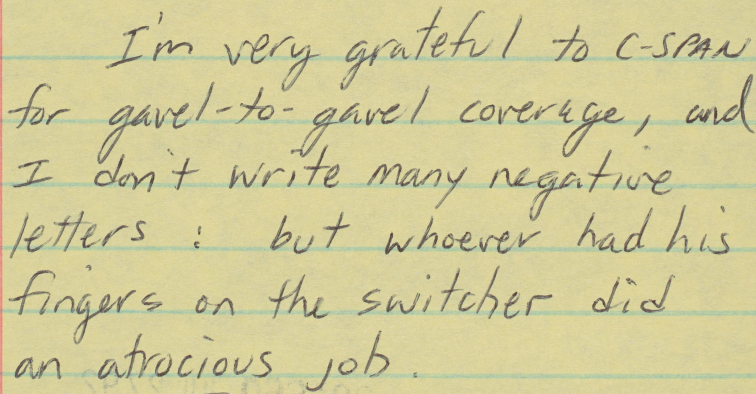 I'm very grateful to C-SPAN
for gavel-to-gavel coverage, and
I don't write many negative
letters : but whoever had his
fingers on the switcher did
an atrocious job.